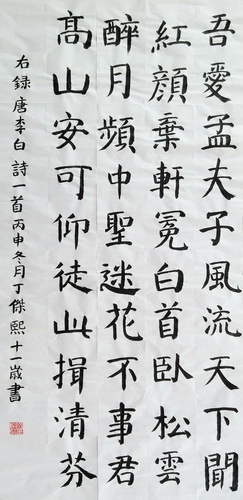 吾愛孟夫子風流天下聞
紅顔棄軒冕白首臥松雲
醉月頻中聖迷花不事君
高山安可仰徒此揖清芬
右録唐李白詩一首丙申冬月丁傑熙十一歲書